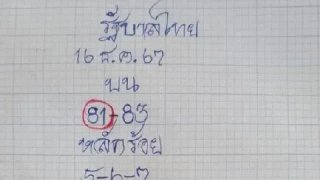 รัฐบาลไทย
16 ธ.ค. 67
บน
81-83
หลักร้อย
5-6-7